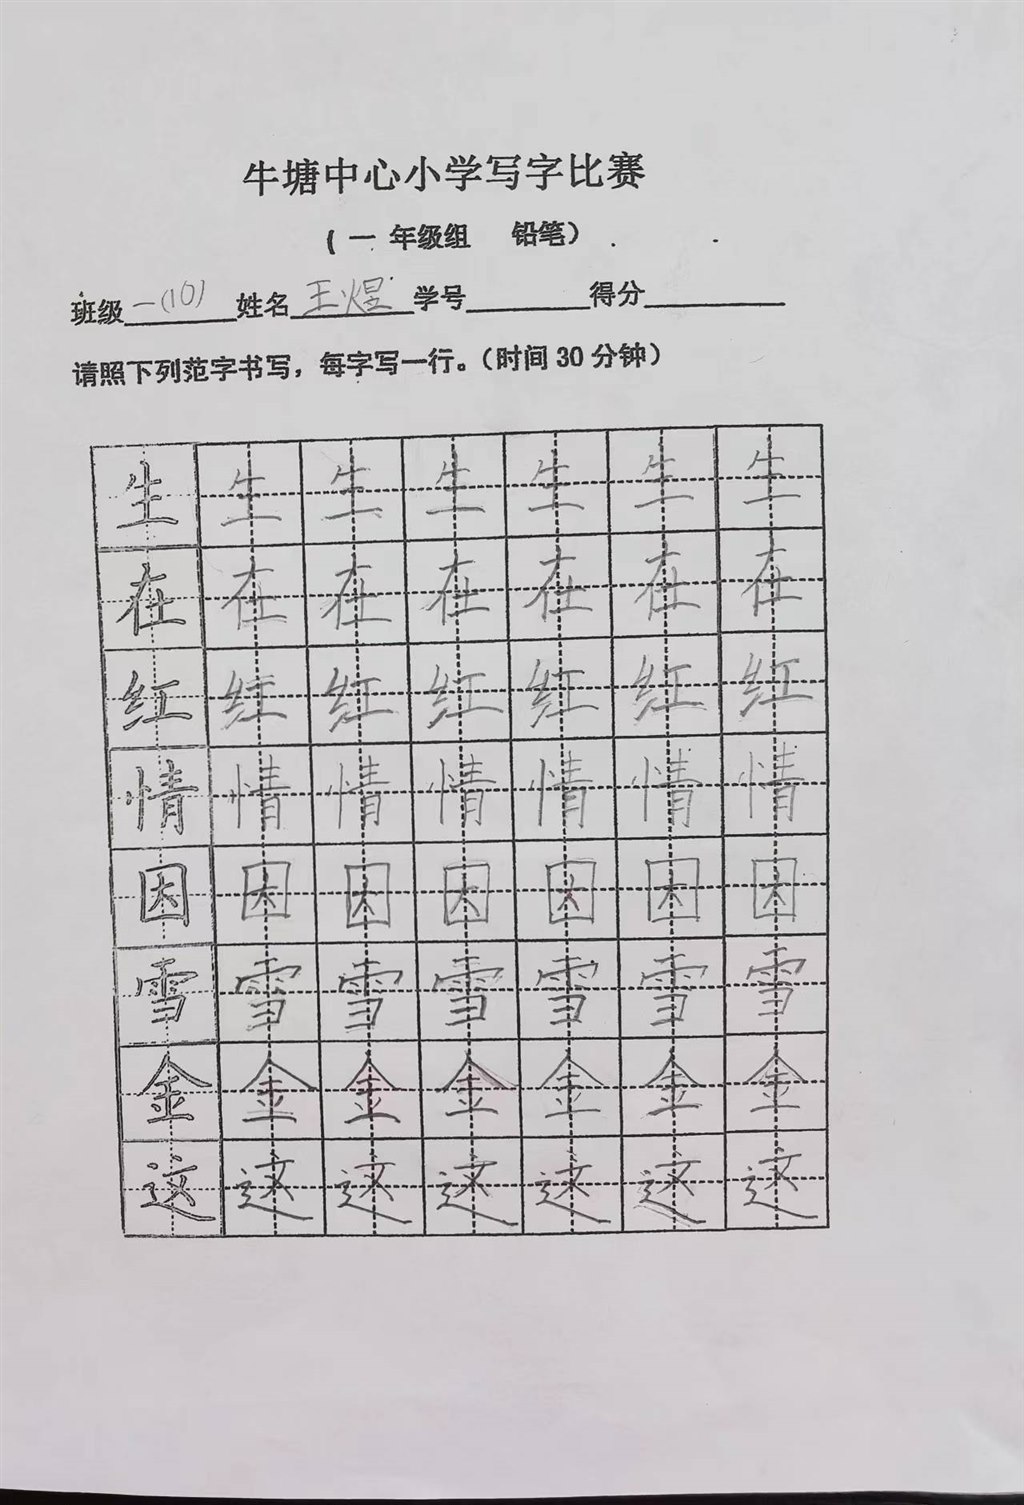 牛塘中心小学写字比赛
（一 年级组 铅笔）
班级一(10) 姓名王煜 学号 得分
请照下列范字书写，每字写一行。（时间 30 分钟）
生 生 生 生 生 生 生
在 在 在 在 在 在 在
红 红 红 红 红 红 红
情 情 情 情 情 情 情
因 因 因 因 因 因 因
雪 雪 雪 雪 雪 雪 雪
金 金 金 金 金 金 金
这 这 这 这 这 这 这